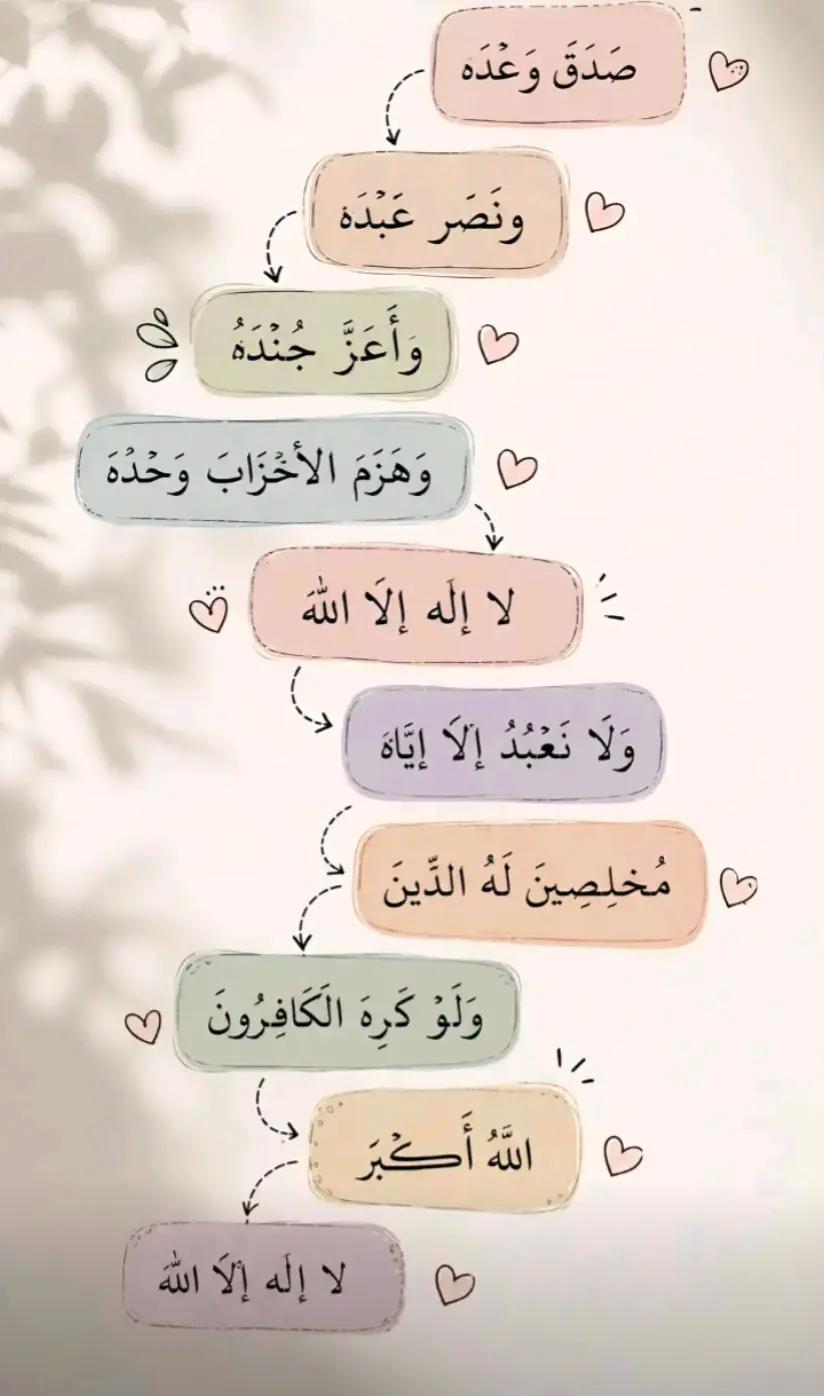 صَدَقَ وَعْدَه
ونَصَر عَبْدَه
وَأَعَزَّ جُنْدَهُ
وَهَزَمَ الأحْزَابَ وَحْدُهَ
لا إلَه إلَا اللهَ
وَلَا نَعْبُدُ إلَا إيَّاهَ
مُخلِصِينَ لَهُ الدِّينَ
وَلَوْ كَرِهَ الَكَافِرُونَ
اللَّهُ أَكْبَرَ
لا إلَه إلَا اللهَ